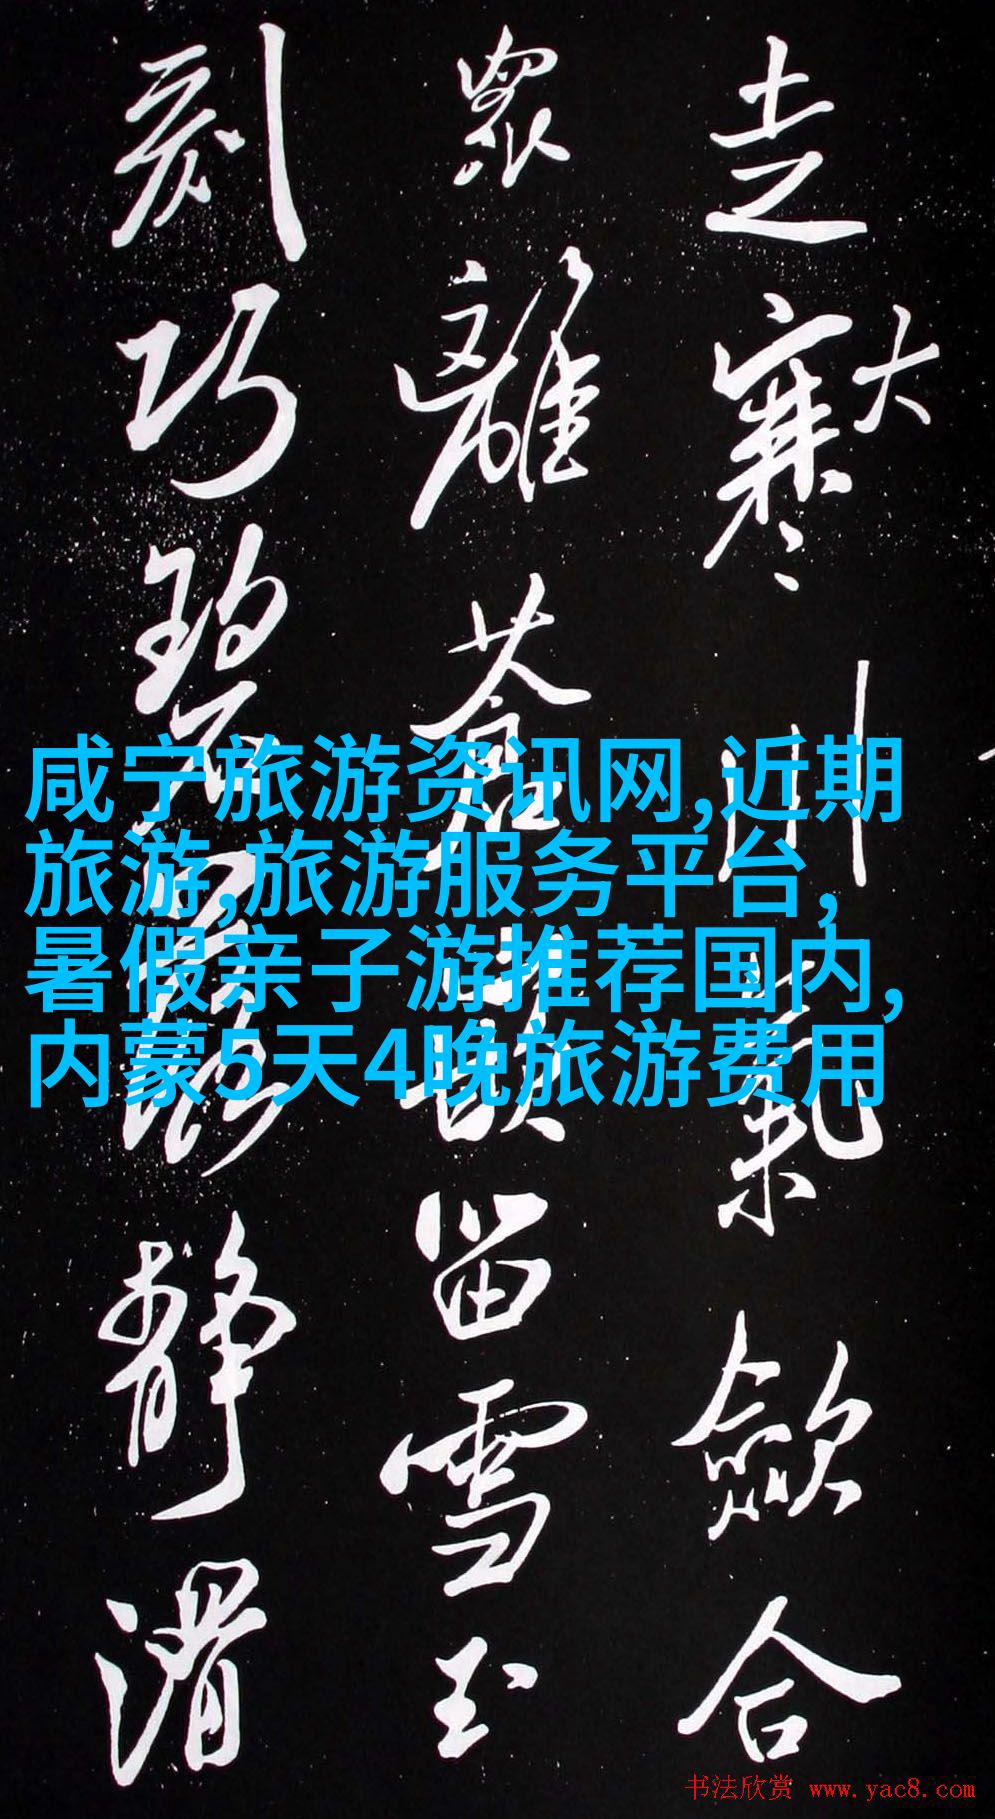 走寒大川氣斂合
眾離蒼留雪玉
刻巧碧靜
咸宁旅游资讯网,近期
旅游,旅游服务平台,
暑假亲子游推荐国内,
内蒙5天4晚旅游费用
书法欣赏 www.yac8.com